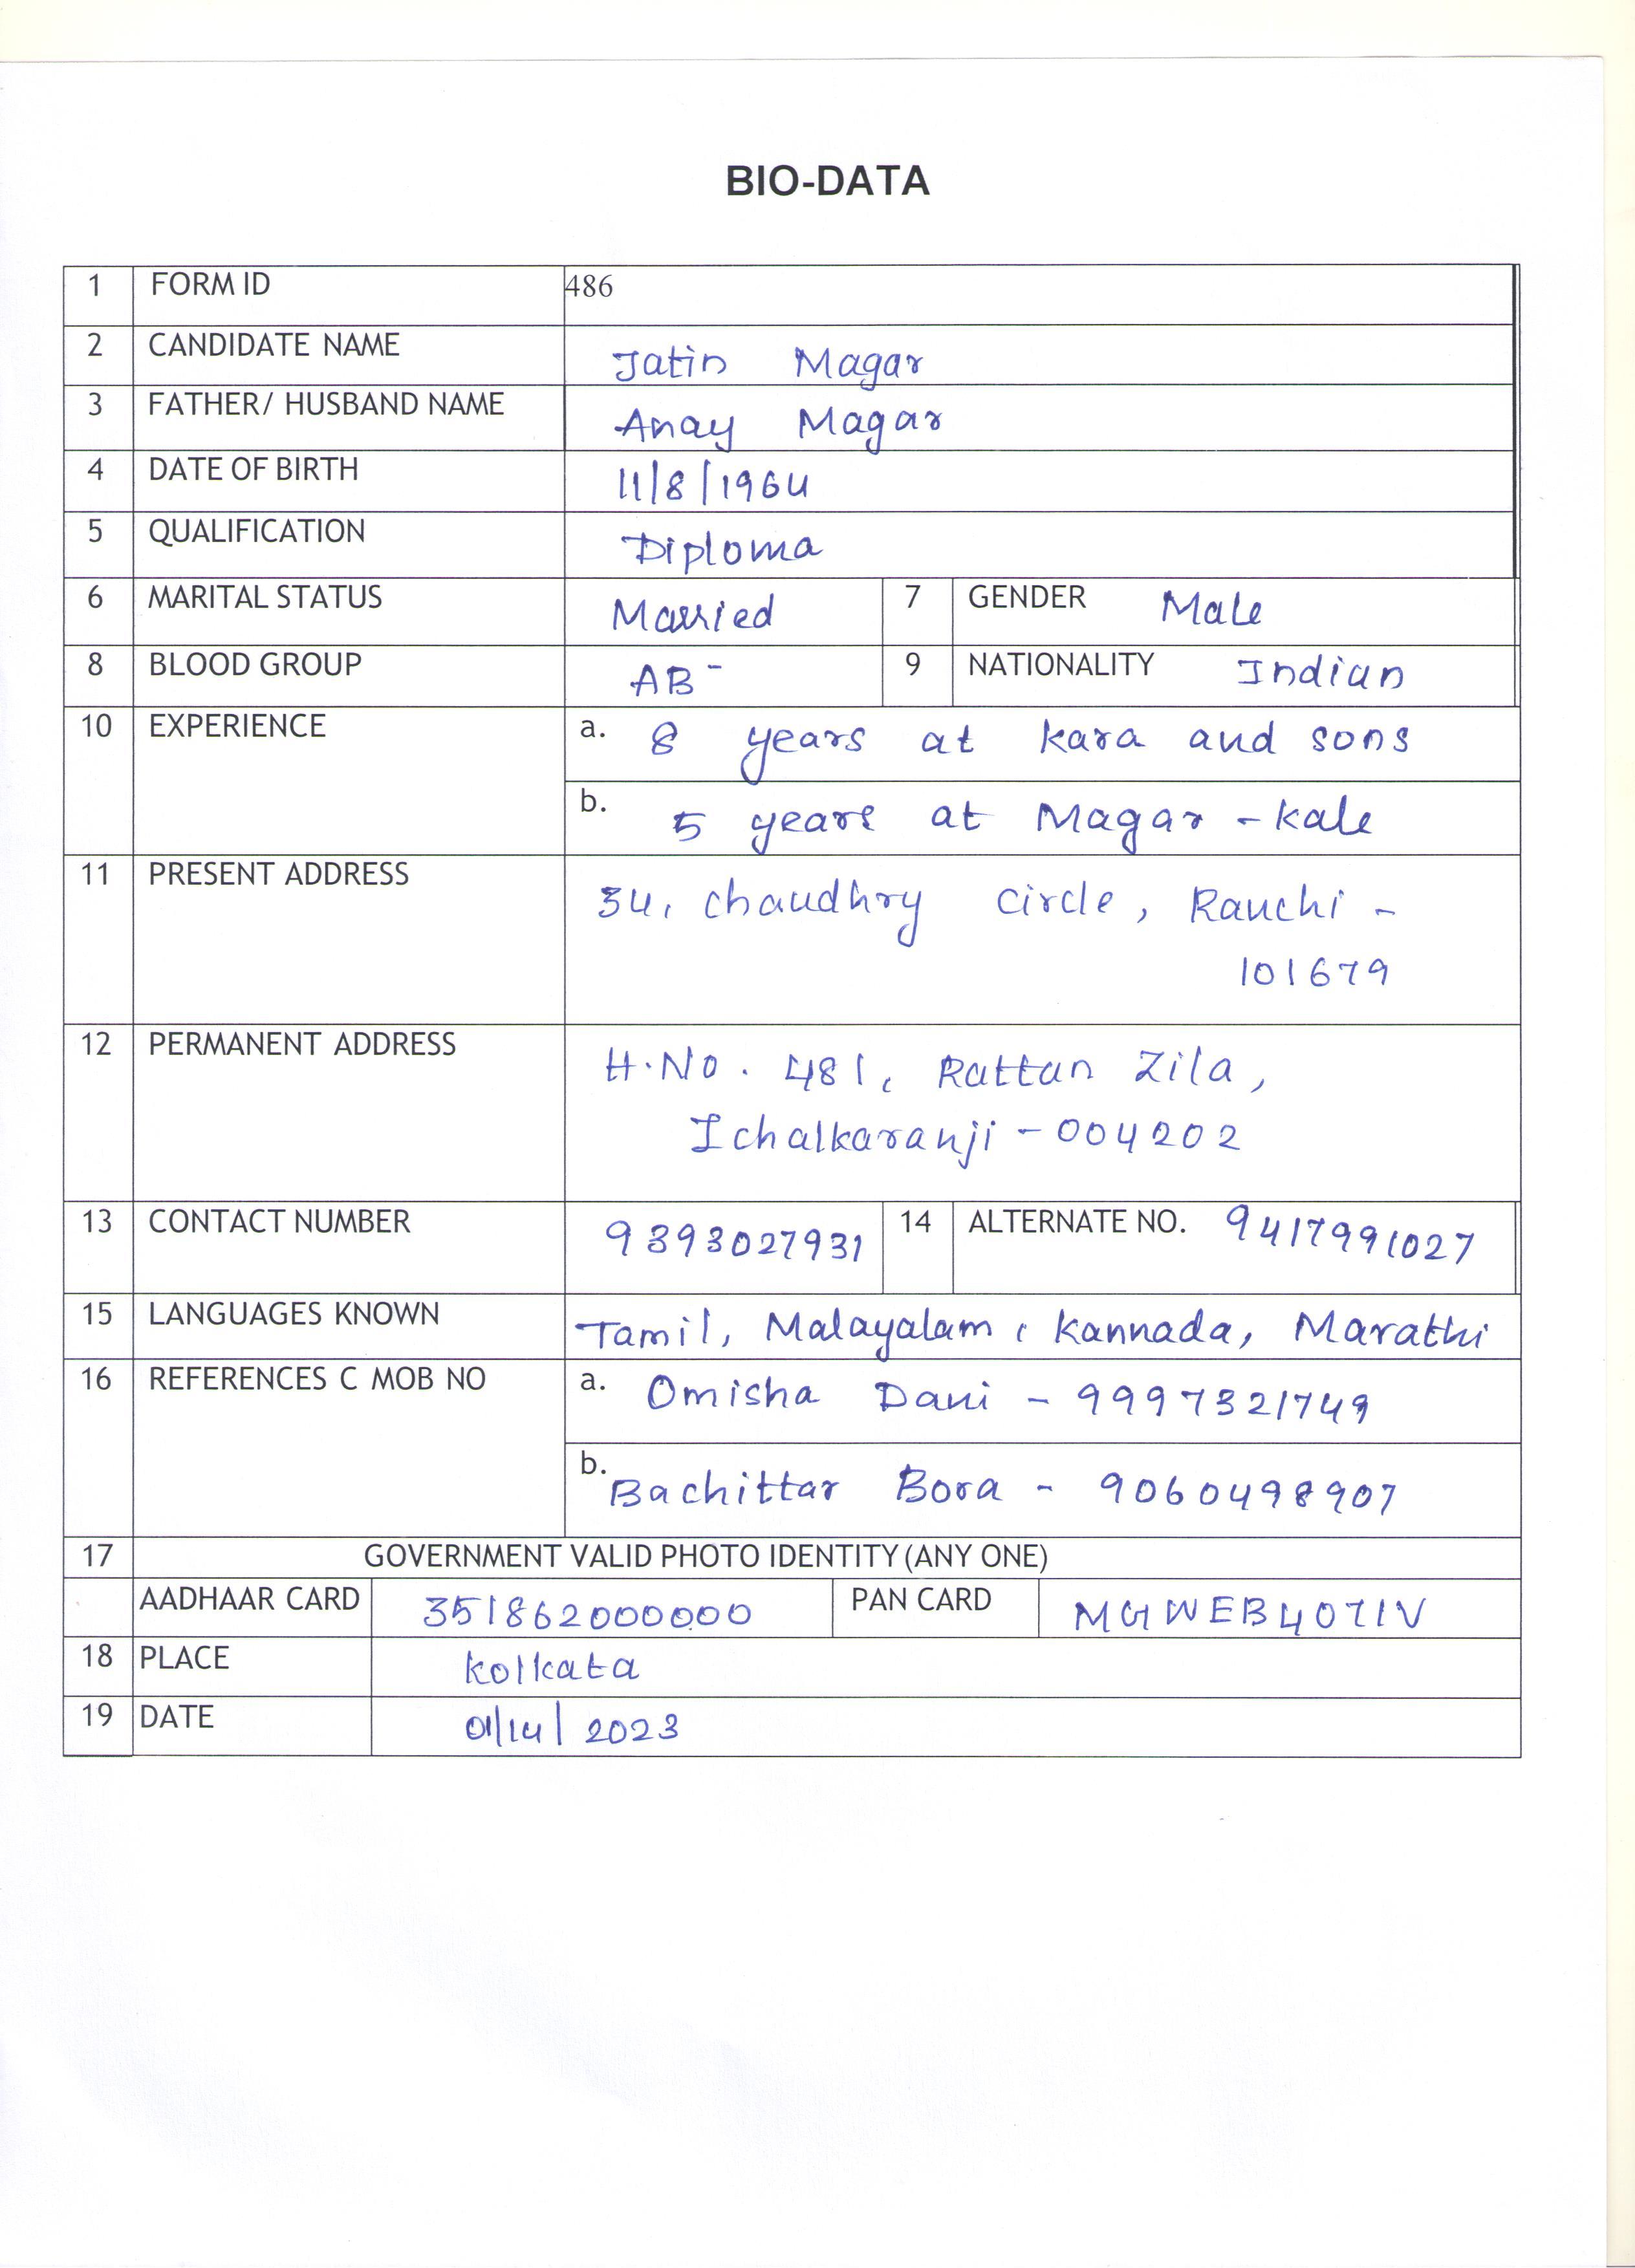 BIO-DATA
1 FORM ID 486
2 CANDIDATE NAME Jatin Magar
3 FATHER/ HUSBAND NAME Anay Magar
4 DATE OF BIRTH 11/8/1964
5 QUALIFICATION Diploma
6 MARITAL STATUS Married 7 GENDER Male
8 BLOOD GROUP AB- 9 NATIONALITY Indian
10 EXPERIENCE a. 8 years at kara and sons
b. 5 years at Magar - kale
11 PRESENT ADDRESS 34, chaudhry circle, Ranchi -
101679
12 PERMANENT ADDRESS H.No. 481, Rattan Zila,
Ichalkaranji - 004202
13 CONTACT NUMBER 9393027931 14 ALTERNATE NO. 9417991027
15 LANGUAGES KNOWN Tamil, Malayalam, kannada, Marathi
16 REFERENCES C MOB NO a. Omisha Dani - 9997321749
b. Bachittar Bora - 9060498907
17 GOVERNMENT VALID PHOTO IDENTITY (ANY ONE)
AADHAAR CARD 351862000000 PAN CARD MGWEB4071V
18 PLACE kolkata
19 DATE 01/14/2023